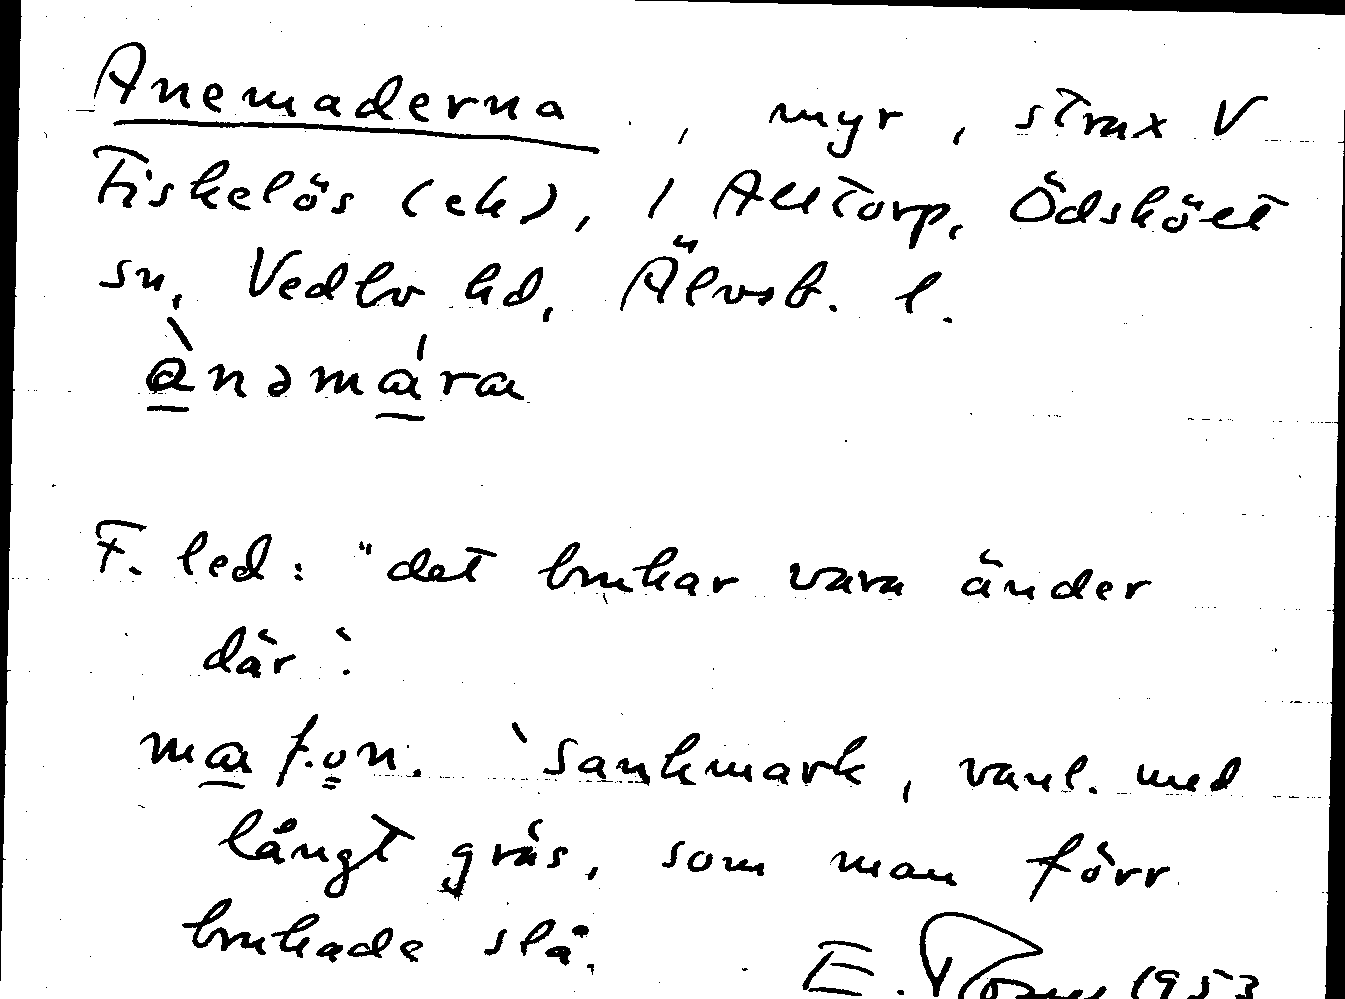 Anemaderna, myr, strax V
Fiskelös (ek), i Alltorp, Ödsköet
sn, Vedbo hd, Älvsb. l.
ànəmára
F. led: "det brukar vara änder
där".
ma f.on. 'Sankmark, vanl. med
långt gräs, som man förr
brukade slå.
E. 1953